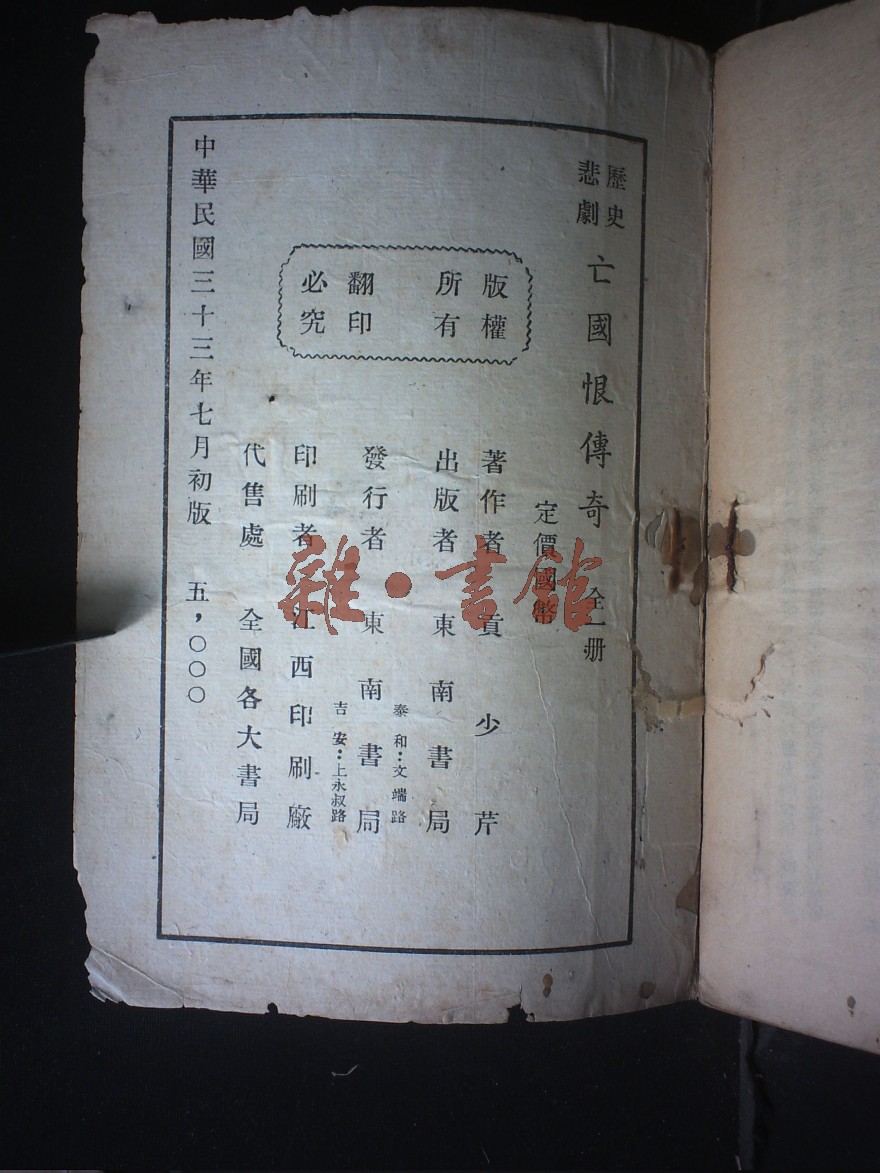 歷史
悲劇
亡國恨傳奇 全一册
定價國幣
版權
所有
翻印
必究
著作者 貢少芹
出版者 東南書局
泰和：文端路
發行者 東南書局
吉安：上永叔路
印刷者 江西印刷廠
代售處 全國各大書局
中華民國三十三年七月初版 五，○○○
雜·書館